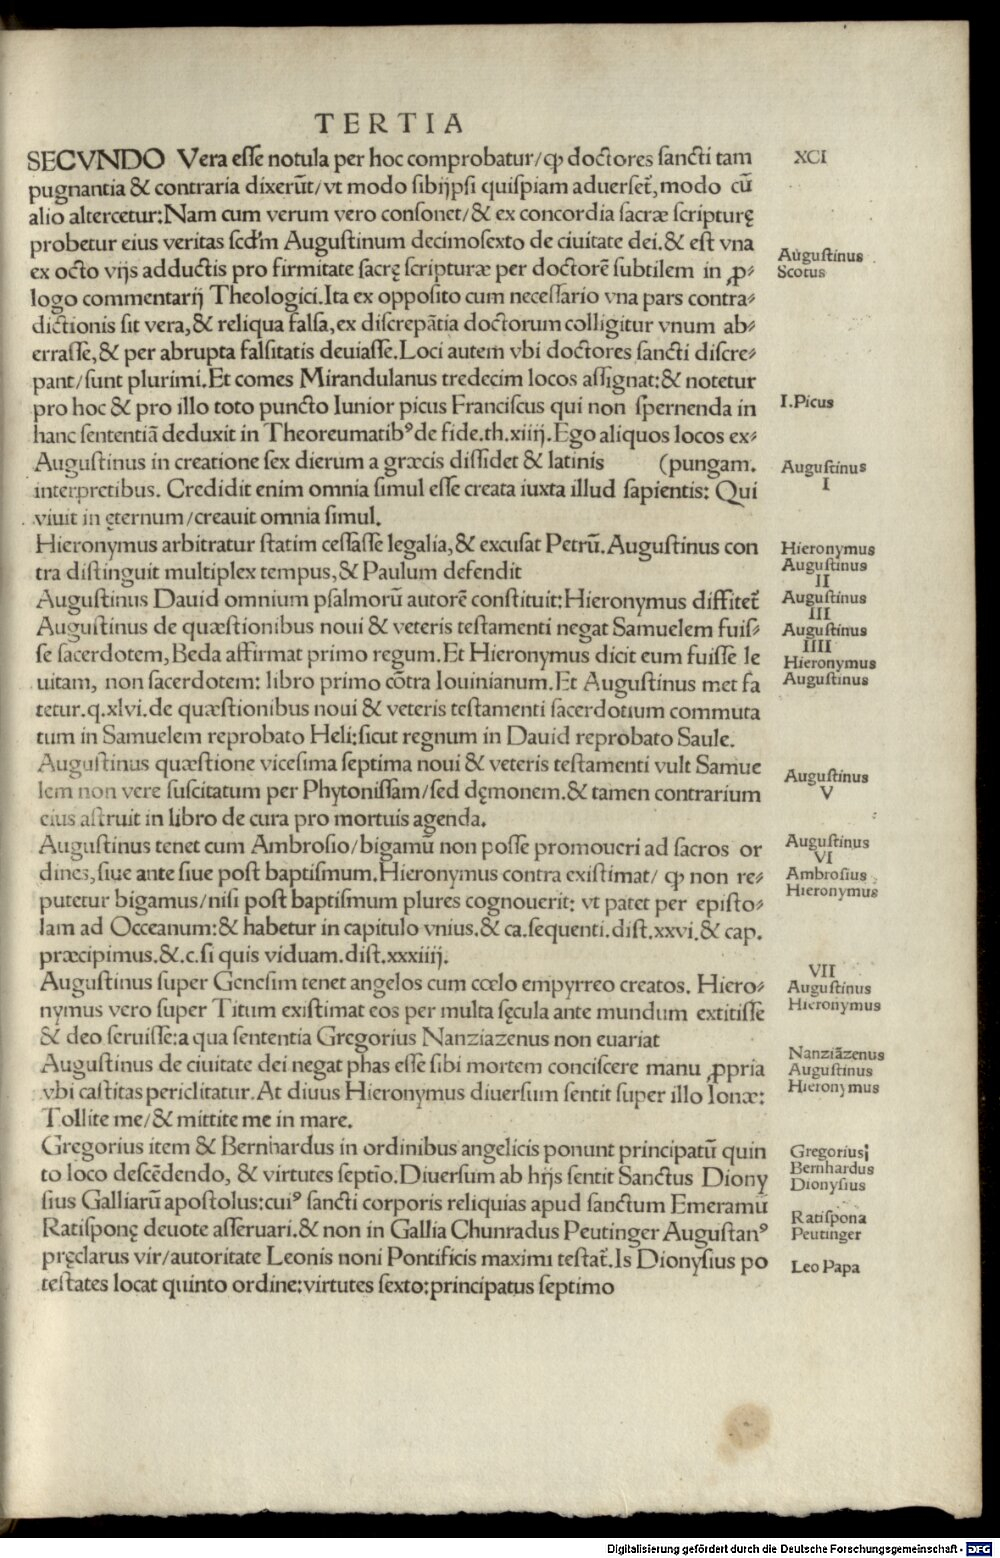 TERTIA
XCI
SECVNDO Vera esse notula per hoc comprobatur/ꝙ doctores sancti tam
pugnantia & contraria dixerūt/vt modo sibijpsi quispiam aduerset᷑, modo cū
alio altercetur: Nam cum verum vero consonet/& ex concordia sacræ scripturę
probetur eius veritas scd'm Augustinum decimosexto de ciuitate dei. & est vna
ex octo vijs adductis pro firmitate sacrę scripturæ per doctorē subtilem in ꝓ⸗
logo commentarij Theologici. Ita ex opposito cum necessario vna pars contra⸗
dictionis sit vera, & reliqua falsa, ex discrepātia doctorum colligitur vnum ab⸗
errasse, & per abrupta falsitatis deuiasse. Loci autem vbi doctores sancti discre⸗
pant/sunt plurimi. Et comes Mirandulanus tredecim locos assignat: & notetur
pro hoc & pro illo toto puncto Iunior picus Franciscus qui non spernenda in
hanc sententiā deduxit in Theoreumatibꝰ de fide. th. xiiij. Ego aliquos locos ex⸗
Augustinus in creatione sex dierum a græcis dissidet & latinis (pungam.
interpretibus. Credidit enim omnia simul esse creata iuxta illud sapientis: Qui
viuit in ęternum/creauit omnia simul.
Hieronymus arbitratur statim cessasse legalia, & excusat Petrū. Augustinus con
tra distinguit multiplex tempus, & Paulum defendit
Augustinus Dauid omnium psalmorū autorē constituit: Hieronymus diffitet᷑
Augustinus de quæstionibus noui & veteris testamenti negat Samuelem fuis⸗
se sacerdotem, Beda affirmat primo regum. Et Hieronymus dicit eum fuisse le
uitam, non sacerdotem: libro primo cōtra Iouinianum. Et Augustinus met fa
tetur. q. xlvi. de quæstionibus noui & veteris testamenti sacerdotium commuta
tum in Samuelem reprobato Heli: sicut regnum in Dauid reprobato Saule.
Augustinus quæstione vicesima septima noui & veteris testamenti vult Samue
lem non vere suscitatum per Phytonissam/sed dęmonem. & tamen contrarium
eius astruit in libro de cura pro mortuis agenda.
Augustinus tenet cum Ambrosio/bigamū non posse promoueri ad sacros or
dines, siue ante siue post baptismum. Hieronymus contra existimat/ ꝙ non re⸗
putetur bigamus/nisi post baptismum plures cognouerit: vt patet per episto⸗
lam ad Occeanum: & habetur in capitulo vnius. & ca. sequenti. dist. xxvi. & cap.
præcipimus. &. c. si quis viduam. dist. xxxiiij.
Augustinus super Genesim tenet angelos cum cœlo empyrreo creatos. Hiero⸗
nymus vero super Titum existimat eos per multa sęcula ante mundum extitisse
& deo seruisse: a qua sententia Gregorius Nanziazenus non euariat
Augustinus de ciuitate dei negat phas esse sibi mortem consciscere manu ꝓpria
vbi castitas periclitatur. At diuus Hieronymus diuersum sentit super illo Ionæ:
Tollite me/& mittite me in mare.
Gregorius item & Bernhardus in ordinibus angelicis ponunt principatū quin
to loco descēdendo, & virtutes septīo. Diuersum ab hijs sentit Sanctus Diony
sius Galliarū apostolus: cuiꝰ sancti corporis reliquias apud sanctum Emeramū
Ratisponę deuote asseruari. & non in Gallia Chunradus Peutinger Augustanꝰ
pręclarus vir/autoritate Leonis noni Pontificis maximi testat᷑. Is Dionysius po
testates locat quinto ordine: virtutes sexto: principatus septimo
Augustinus
Scotus
I. Picus
Augustinus
I
Hieronymus
Augustinus
II
Augustinus
III
Augustinus
IIII
Hieronymus
Augustinus
Augustinus
V
Augustinus
VI
Ambrosius
Hieronymus
VII
Augustinus
Hieronymus
Nanziāzenus
Augustinus
Hieronymus
Gregorius
Bernhardus
Dionysius
Ratispona
Peutinger
Leo Papa
Digitalisierung gefördert durch die Deutsche Forschungsgemeinschaft - DFG